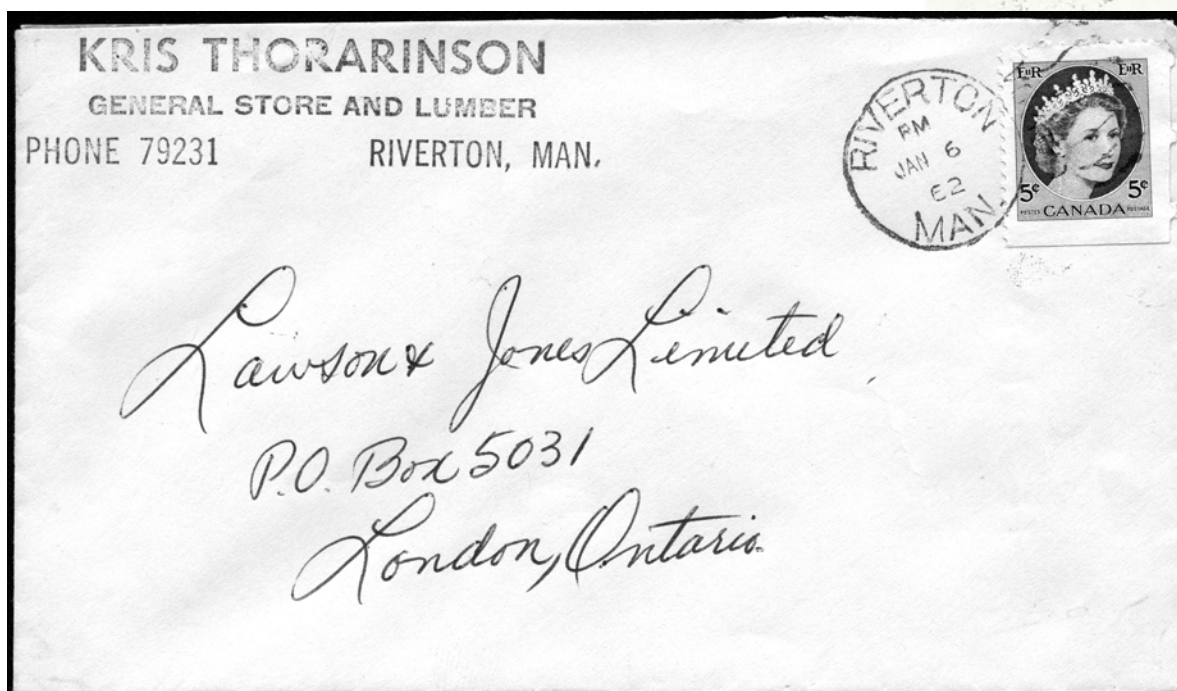 KRIS THORARINSON
GENERAL STORE AND LUMBER
PHONE 79231 RIVERTON, MAN.
RIVERTON
PM
JAN 6
62
MAN.
EIIR EIIR
5¢ 5¢
POSTES CANADA POSTAGE
Lawson & Jones Limited
P.O. Box 5031
London, Ontario.